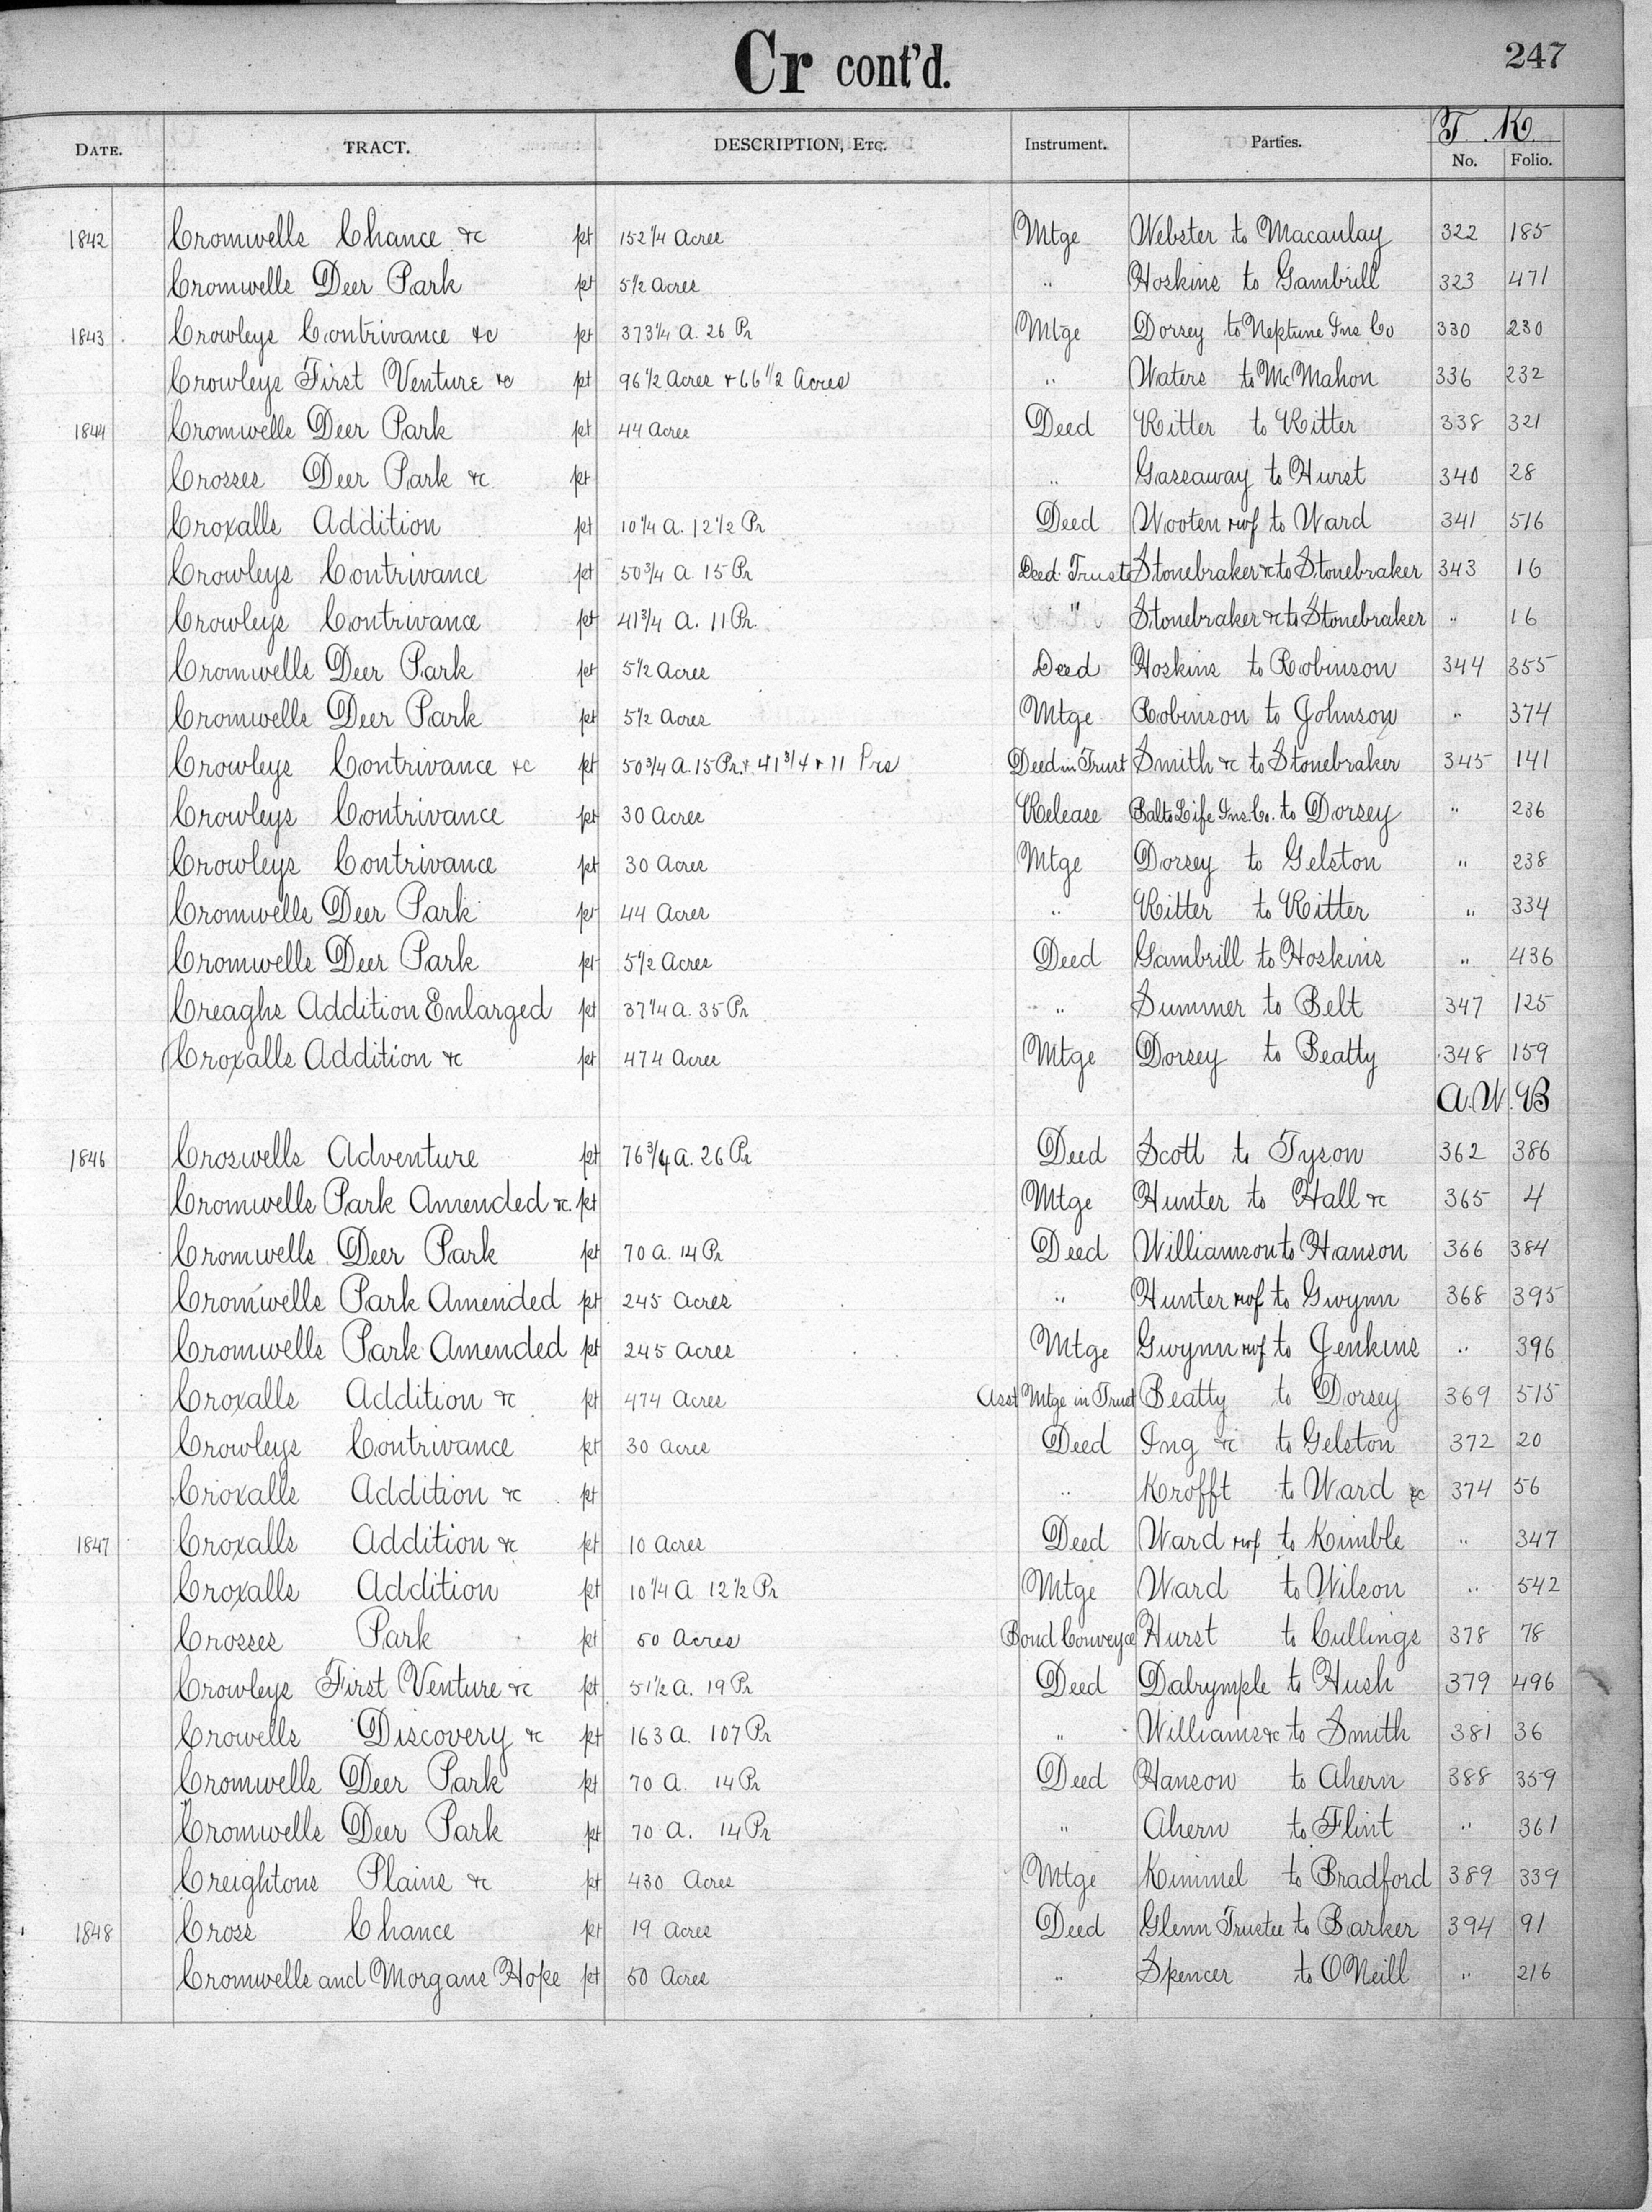 Cr cont'd.
247
DATE. TRACT. DESCRIPTION, ETC. Instrument. Parties. T. K. No. Folio.
1842 Cromwells Chance &c pt 152 1/4 Acres Mtge Webster to Macaulay 322 185
Cromwells Deer Park pt 5 1/2 Acres " Hoskins to Gambrill 323 471
1843 Crowleys Contrivance &c pt 373 1/4 A. 26 Pr Mtge Dorsey to Neptune Ins. Co 330 230
Crowleys First Venture &c pt 96 1/2 Acres + 66 1/2 Acres " Waters to McMahon 336 232
1844 Cromwells Deer Park pt 44 Acres Deed Ritter to Ritter 338 321
Crosses Deer Park &c pt " Gassaway to Hurst 340 28
Croxalls Addition pt 10 1/4 A. 12 1/2 Pr Deed Wooten & wf to Ward 341 516
Crowleys Contrivance pt 50 3/4 A. 15 Pr Deed Trust Stonebraker &c to Stonebraker 343 16
Crowleys Contrivance pt 41 3/4 A. 11 Pr. " Stonebraker &c to Stonebraker " 16
Cromwells Deer Park pt 5 1/2 Acres Deed Hoskins to Robinson 344 355
Cromwells Deer Park pt 5 1/2 Acres Mtge Robinson to Johnson " 374
Crowleys Contrivance &c pt 50 3/4 A. 15 Pr. + 41 3/4 + 11 Prs Deed in Trust Smith &c to Stonebraker 345 141
Crowleys Contrivance pt 30 Acres Release Balto Life Ins. Co. to Dorsey " 236
Crowleys Contrivance pt 30 Acres Mtge Dorsey to Gelston " 238
Cromwells Deer Park pt 44 Acres " Ritter to Ritter " 334
Cromwells Deer Park pt 5 1/2 Acres Deed Gambrill to Hoskins " 436
Creaghs Addition Enlarged pt 37 1/4 A. 35 Pr " Summer to Belt 347 125
Croxalls Addition &c pt 474 Acres Mtge Dorsey to Beatty 348 159
A. W. B
1846 Croswells Adventure pt 76 3/4 A. 26 Pr Deed Scott to Tyson 362 386
Cromwells Park Amended &c. pt Mtge Hunter to Hall &c 365 4
Cromwells Deer Park pt 70 A. 14 Pr Deed Williamson to Hanson 366 384
Cromwells Park Amended pt 245 Acres " Hunter & wf to Gwynn 368 395
Cromwells Park Amended pt 245 Acres Mtge Gwynn & wf to Jenkins " 396
Croxalls Addition &c pt 474 Acres Asst Mtge in Trust Beatty to Dorsey 369 515
Crowleys Contrivance pt 30 Acres Deed Ing &c to Gelston 372 20
Croxalls Addition &c pt " Krofft to Ward &c 374 56
1847 Croxalls Addition &c pt 10 Acres Deed Ward & wf to Kimble " 347
Croxalls Addition pt 10 1/4 A 12 1/2 Pr Mtge Ward to Wilson " 542
Crosses Park pt 50 Acres Bond Conveyce Hurst to Cullings 378 78
Crowleys First Venture &c pt 51 1/2 A. 19 Pr Deed Dalrymple to Hush 379 496
Crowells Discovery &c pt 163 A. 107 Pr " Williams &c to Smith 381 36
Cromwells Deer Park pt 70 A. 14 Pr Deed Hanson to Ahern 388 359
Cromwells Deer Park pt 70 A. 14 Pr " Ahern to Flint " 361
Creightons Plains &c pt 430 Acres Mtge Kimmel to Bradford 389 339
1848 Cross Chance pt 19 Acres Deed Glenn Trustee to Barker 394 91
Cromwells and Morgans Hope pt 50 Acres " Spencer to O'Neill " 216